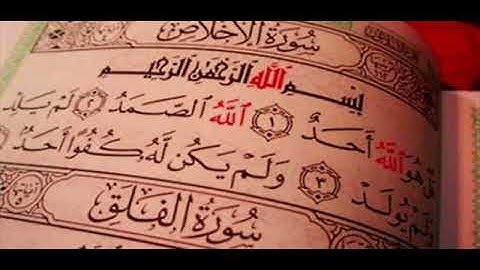 سُورَةُ الْإِخْلَاصِ
بِسْمِ اللَّهِ الرَّحْمَٰنِ الرَّحِيمِ
هُوَ اللَّهُ أَحَدٌ ١ اللَّهُ الصَّمَدُ ٢ لَمْ يَلِدْ
وَلَمْ يُولَدْ ٣ وَلَمْ يَكُن لَّهُ كُفُوًا أَحَدٌ
سُورَةُ الْفَلَقِ